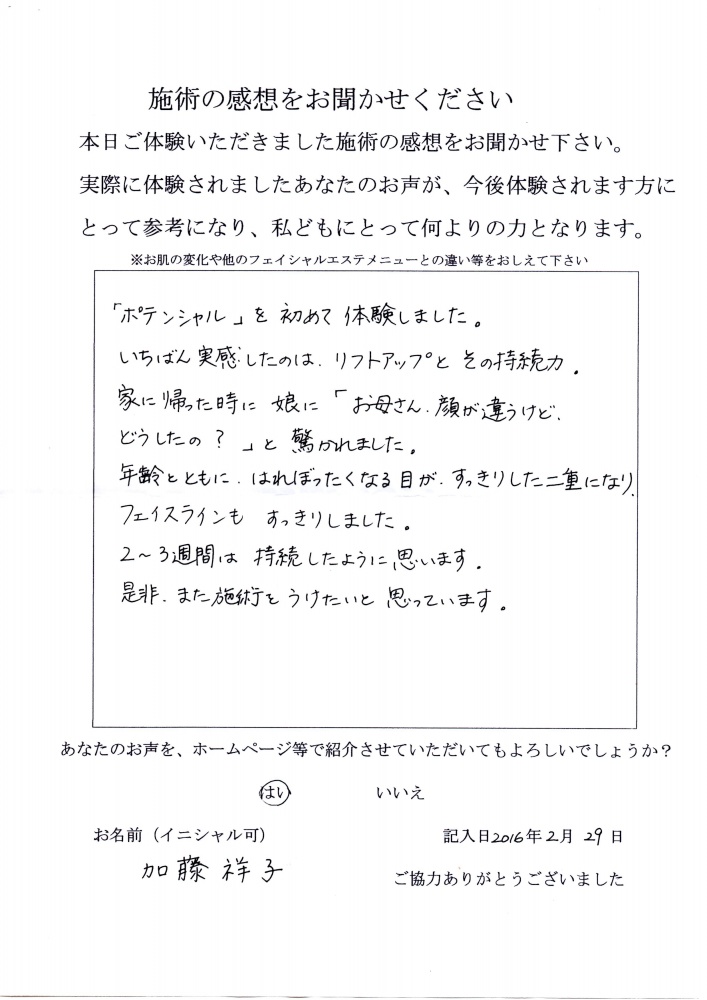 施術の感想をお聞かせください
本日ご体験いただきました施術の感想をお聞かせ下さい。
実際に体験されましたあなたのお声が、今後体験されます方に
とって参考になり、私どもにとって何よりの力となります。
※お肌の変化や他のフェイシャルエステメニューとの違い等をおしえて下さい
「ポテンシャル」を初めて体験しました。
いちばん実感したのは、リフトアップとその持続力。
家に帰った時に娘に「お母さん、顔が違うけど、
どうしたの？」と驚かれました。
年齢とともに、はれぼったくなる目が、すっきりした二重になり、
フェイスラインもすっきりしました。
2〜3週間は持続したように思います。
是非、また施術をうけたいと思っています。
あなたのお声を、ホームページ等で紹介させていただいてもよろしいでしょうか？
はい いいえ
お名前（イニシャル可） 記入日2016年2月29日
加藤祥子
ご協力ありがとうございました